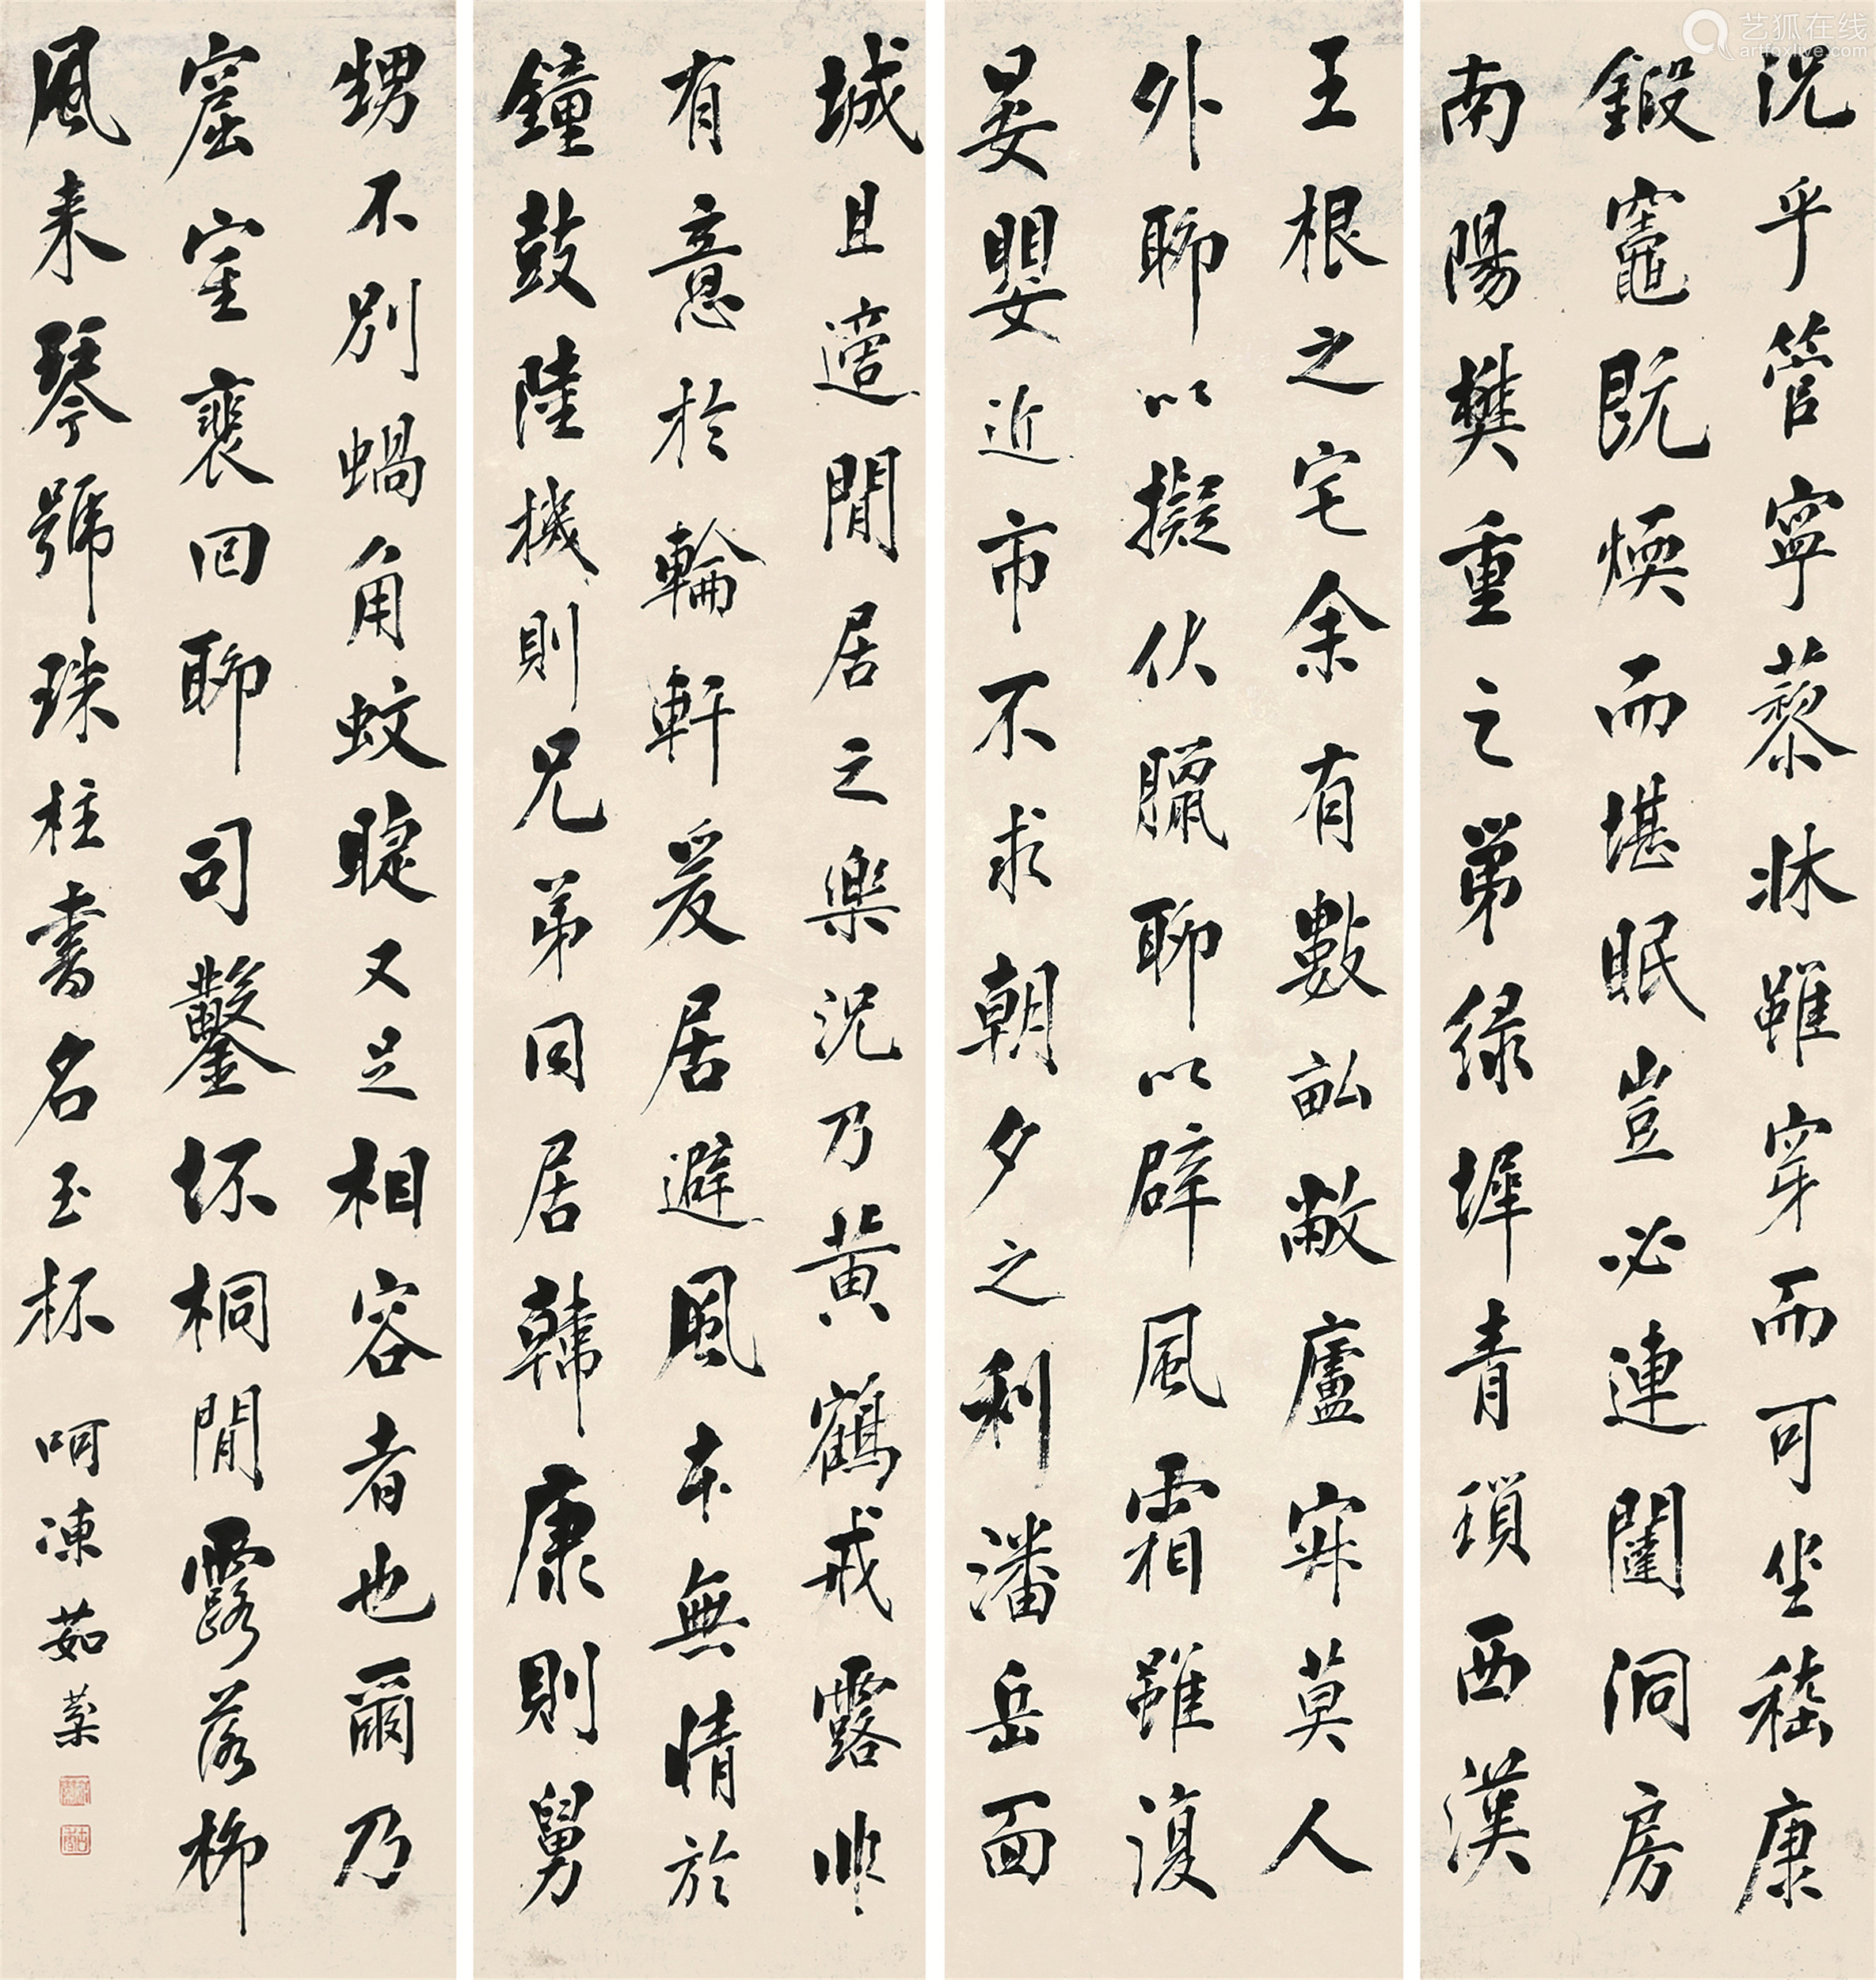 况乎管寧藜牀雖穿而可坐嵇康
鍛竈既煖而堪眠豈必連闥洞房
南陽樊重之第綠墀青瑣西漢
王根之宅余有數畝敝廬寂寞人
外聊以擬伏臘聊以辟風霜雖復
晏嬰近市不求朝夕之利潘岳面
城且適閒居之樂況乃黃鶴戒露非
有意於輪軒爰居避風本無情於
鐘鼓陸機則兄弟同居韓康則舅
甥不別蝸角蚊睫又足相容者也爾乃
窟室裵回聊同鑿坏桐間露落柳
風來琴號珠柱書名玉杯 呵凍茹棻
艺狐在线
artfoxlive.com